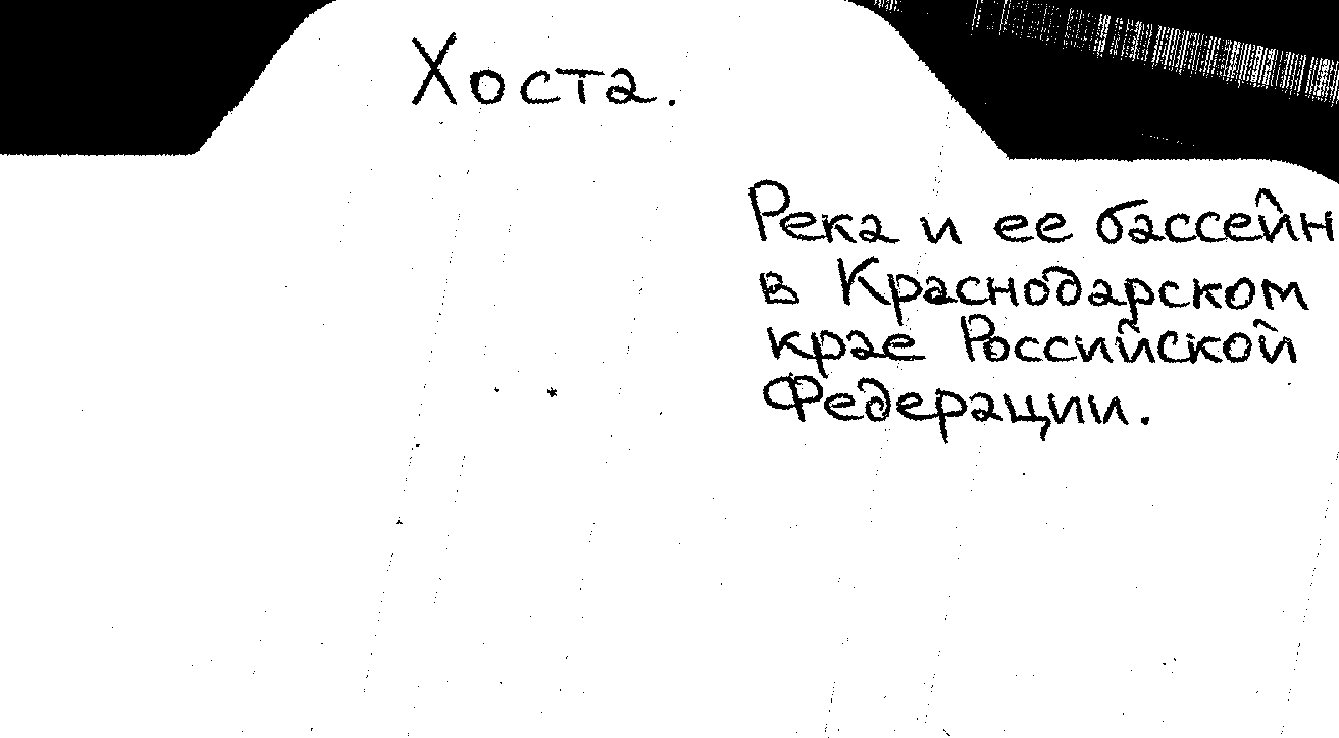 Хоста.
Река и ее бассейн
в Краснодарском
крае Российской
Федерации.